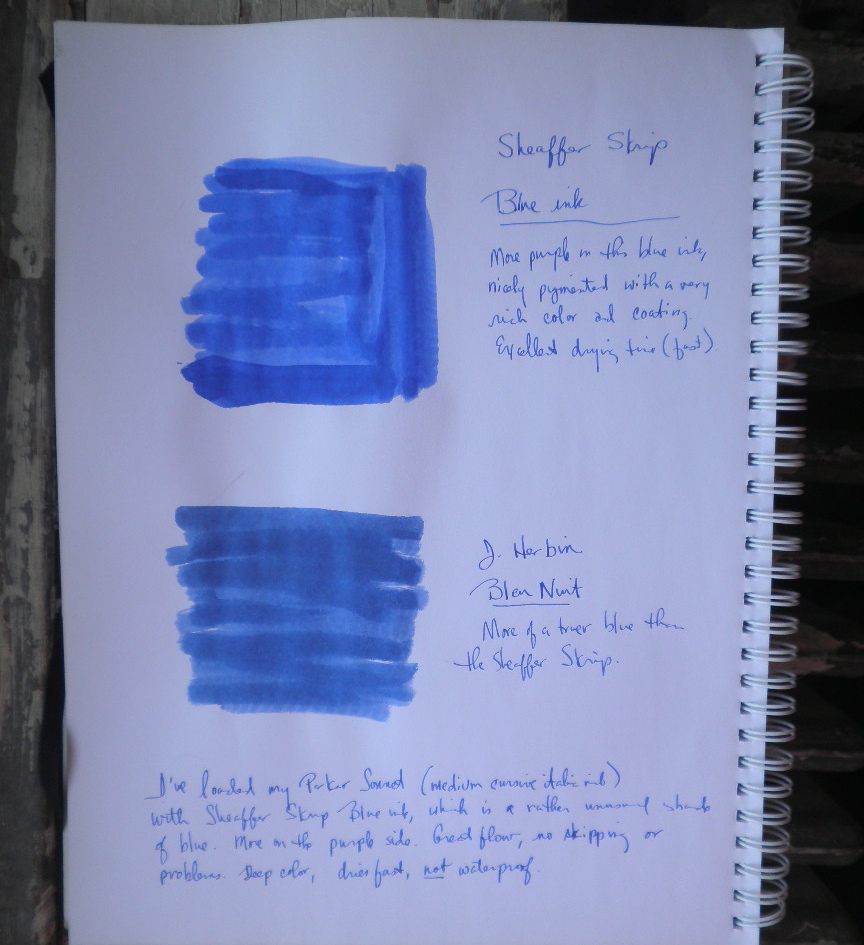 Sheaffer Skrip
Blue ink
More purple in this blue ink,
nicely pygmented with a very
rich color and coating.
Excellent drying time (fast)
J. Herbin
Bleu Nuit
More of a truer blue than
the Sheaffer Skrip.
I've loaded my Parker Sonnet (medium cursive italic nib)
with Sheaffer Skrip Blue ink, which is a rather unusual shade
of blue. More on the purple side. Great flow, no skipping or
problems. Deep color, dries fast, not waterproof.